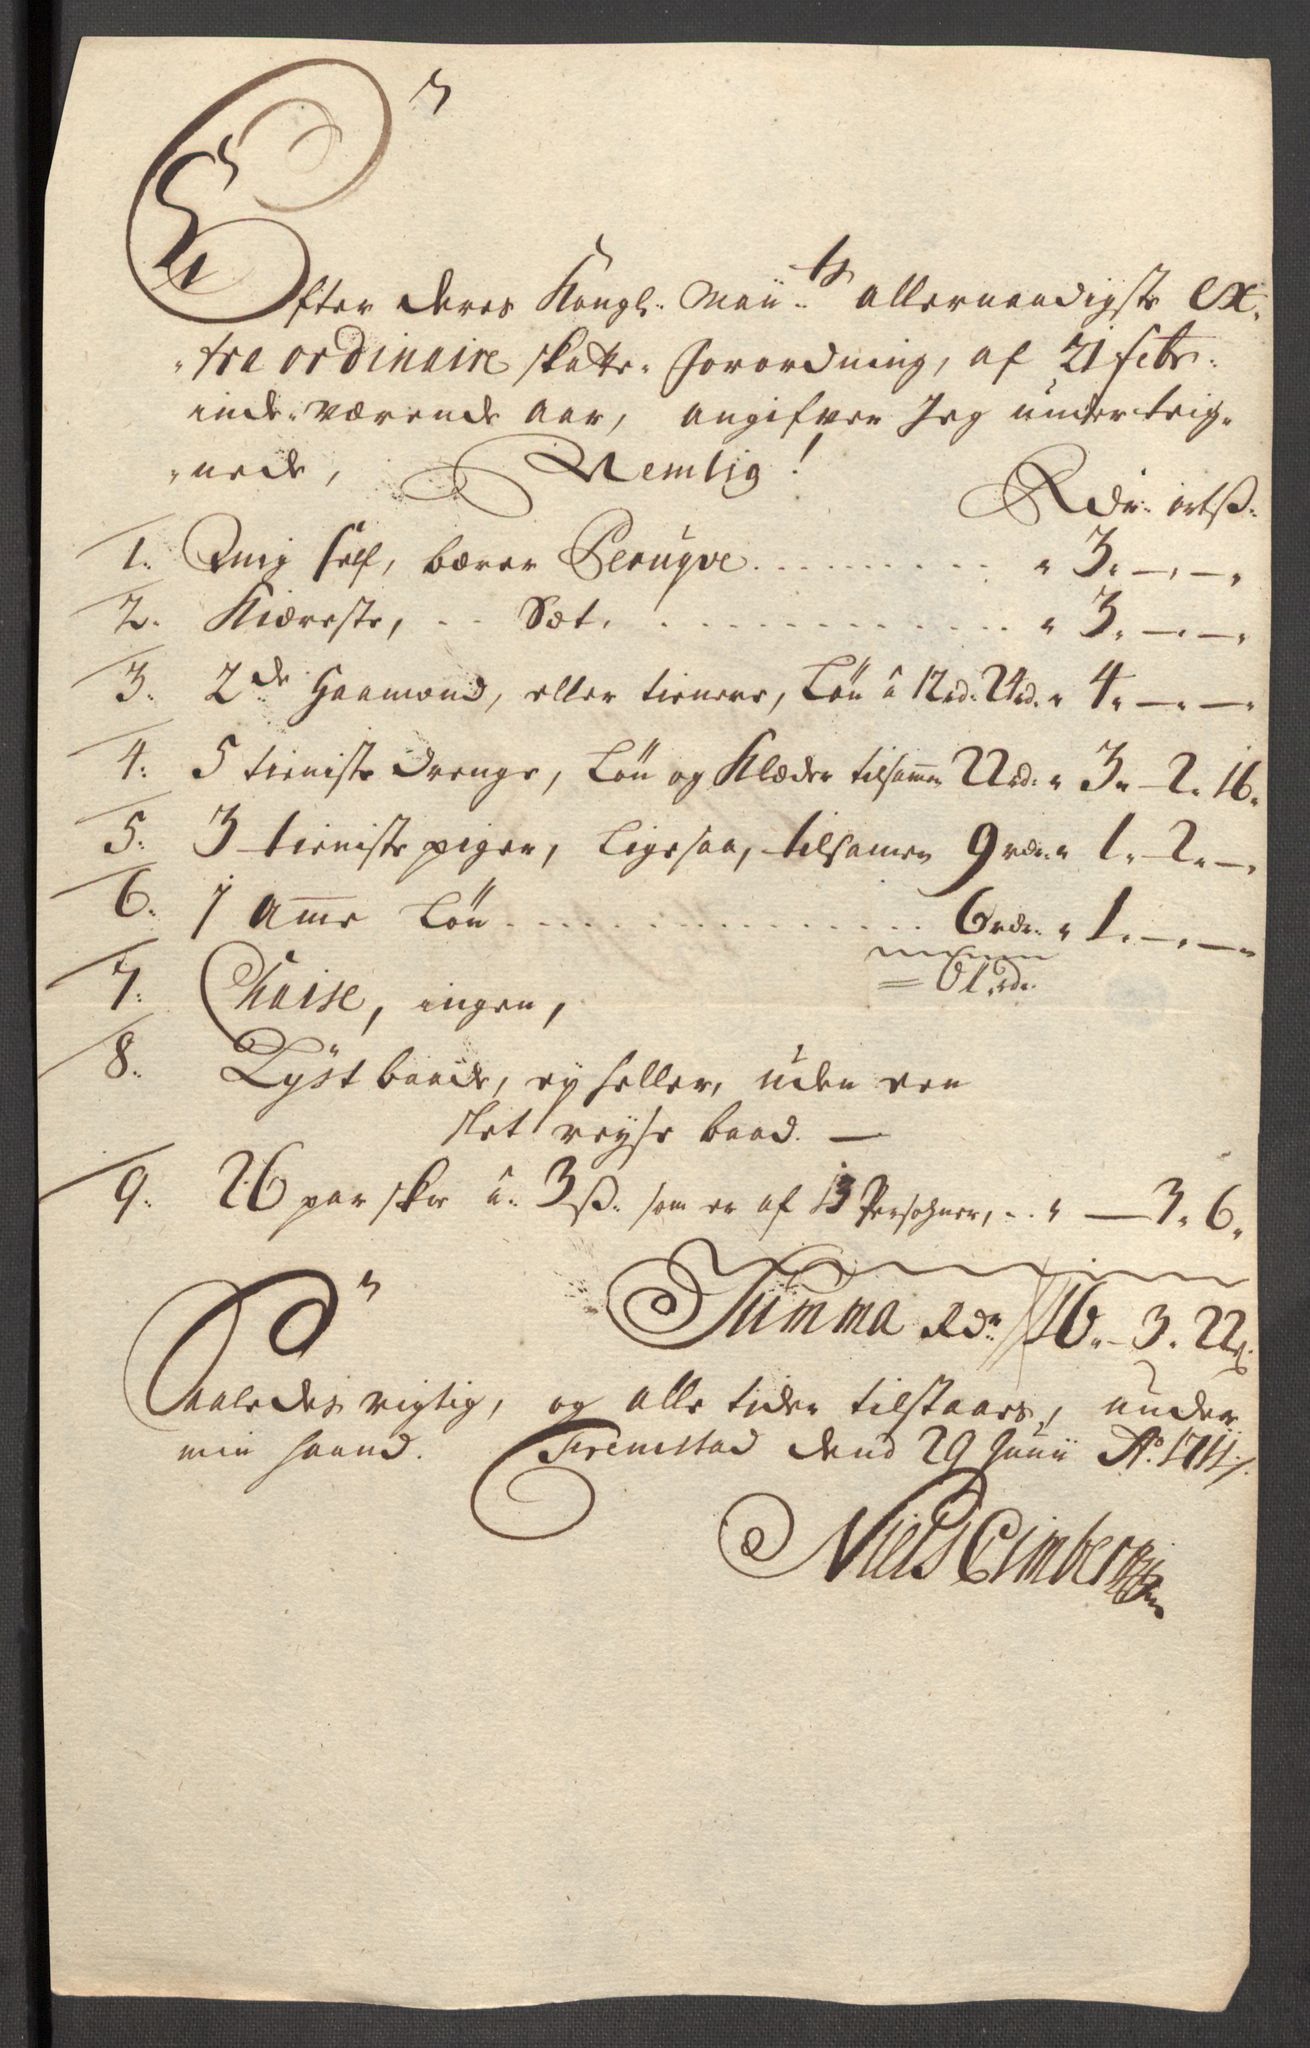 Efter deres Kongl: Maÿ:ts allernaadigste ex-
-tra ordinaire skatte- forordning, af 21 febr:
inde-værende aar, angifver Jeg under teig-
-nede, Nemlig!
Rdr: ort ß:
1. Mig self, bærer Peruqve . . . . . . . . . " 3. —. —.
2. Kiæreste, - - Sæt. . . . . . . . . . . . . " 3. —. —.
3. 2de gaamend, eller tienere, Løn â 12 rd: 24 rd. " 4. —. —.
4. 5 tieniste drenge, Løn og Klæder tilsamen 22 rd. " 3. 2. 16.
5. 3 tieniste piger, ligesaa, tilsamen 9 rdr. " 1. 2. —.
6. 1 Amme Løn . . . . . . . . . . . . . . 6 rdr. " 1. —. —
= 61 rd.
7. Chaise, ingen,
8. Lÿst baade, eÿ heller, uden een
slet reÿse baad. —
9. 26 par skoe â. 3 ß. som er af 13 Persohner, - . " — 3. 6.
Summa Rdr 16. 3. 22 ß.
Saaledes rigtig, og alle tider tilstaaes, under
min haand. dend 29 Junii Ao. 1711.
Niels Cimber